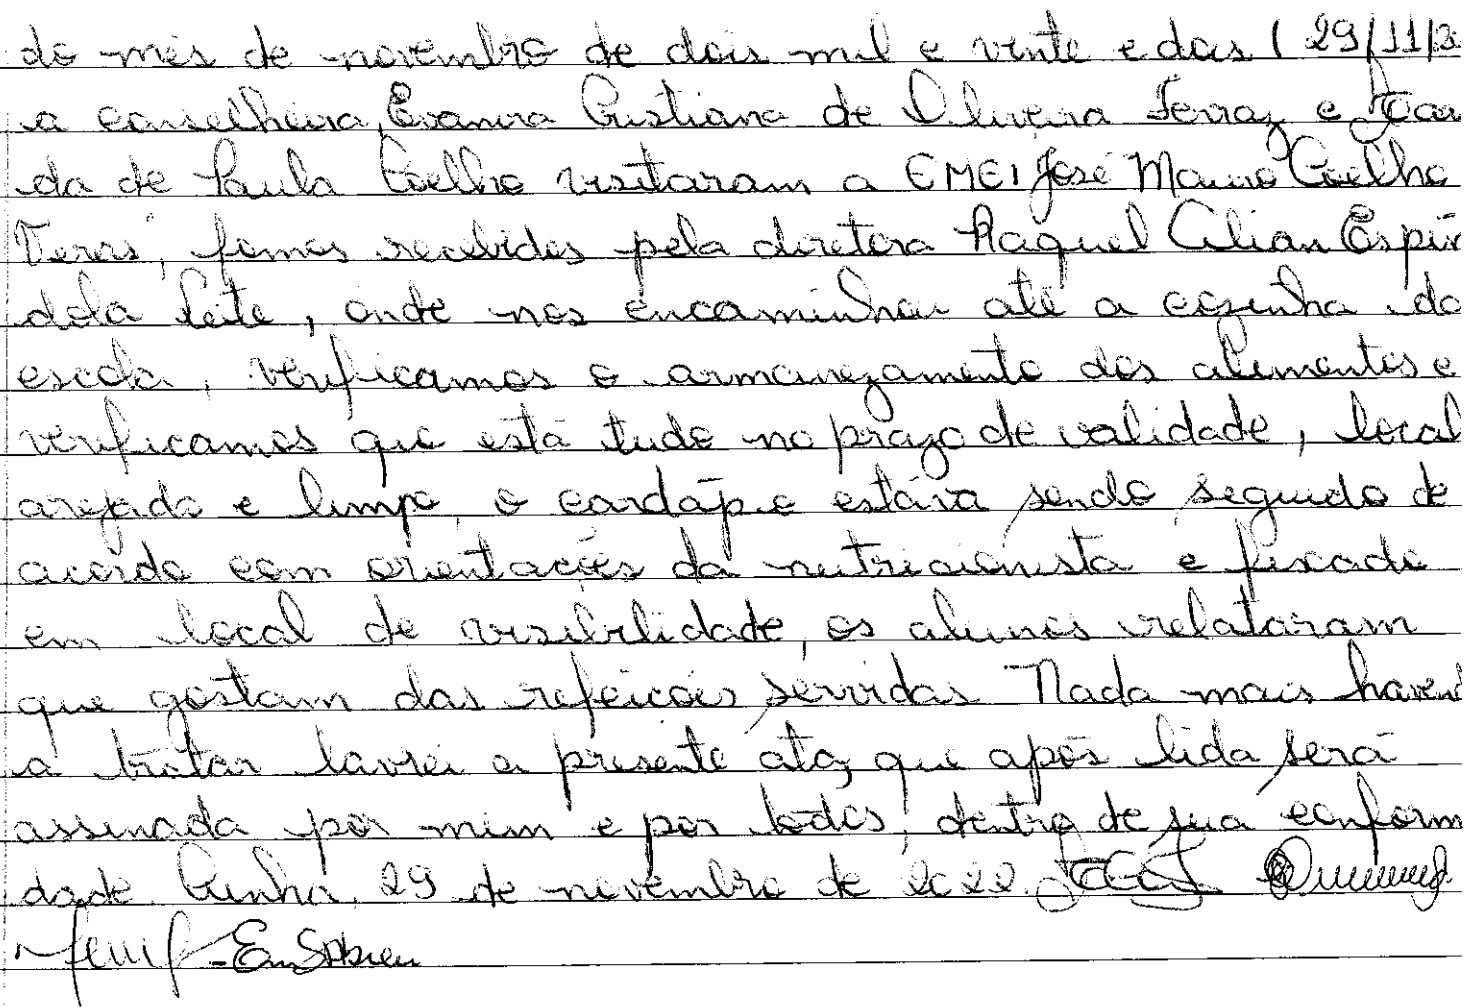 do mês de novembro de dois mil e vinte e dois ( 29/11/2
a conselheira, Evanira Cristiana de Oliveira Ferraz e
da de Paula Coelho visitaram a EMEI José Mauro Coelho
Veras, fomos recebidos pela diretora Raquel Cilian Espín
dola Leite, onde nos encaminhou até a cozinha da
escola, verificamos o armanezamento dos alimentos e
verificamos que está tudo no prazo de validade, local
arejado e limpo, o cardápio estava sendo seguido de
acordo com orientações da nutricionista e fixado
em local de visibilidade, os alunos relataram
que gostam das refeições servidas. Nada mais havend
a tratar lavrei a presente ata, que após lida será
assinada por mim e por todos, dentro de sua conform
dade. Cunha, 29 de novembro de 2022.